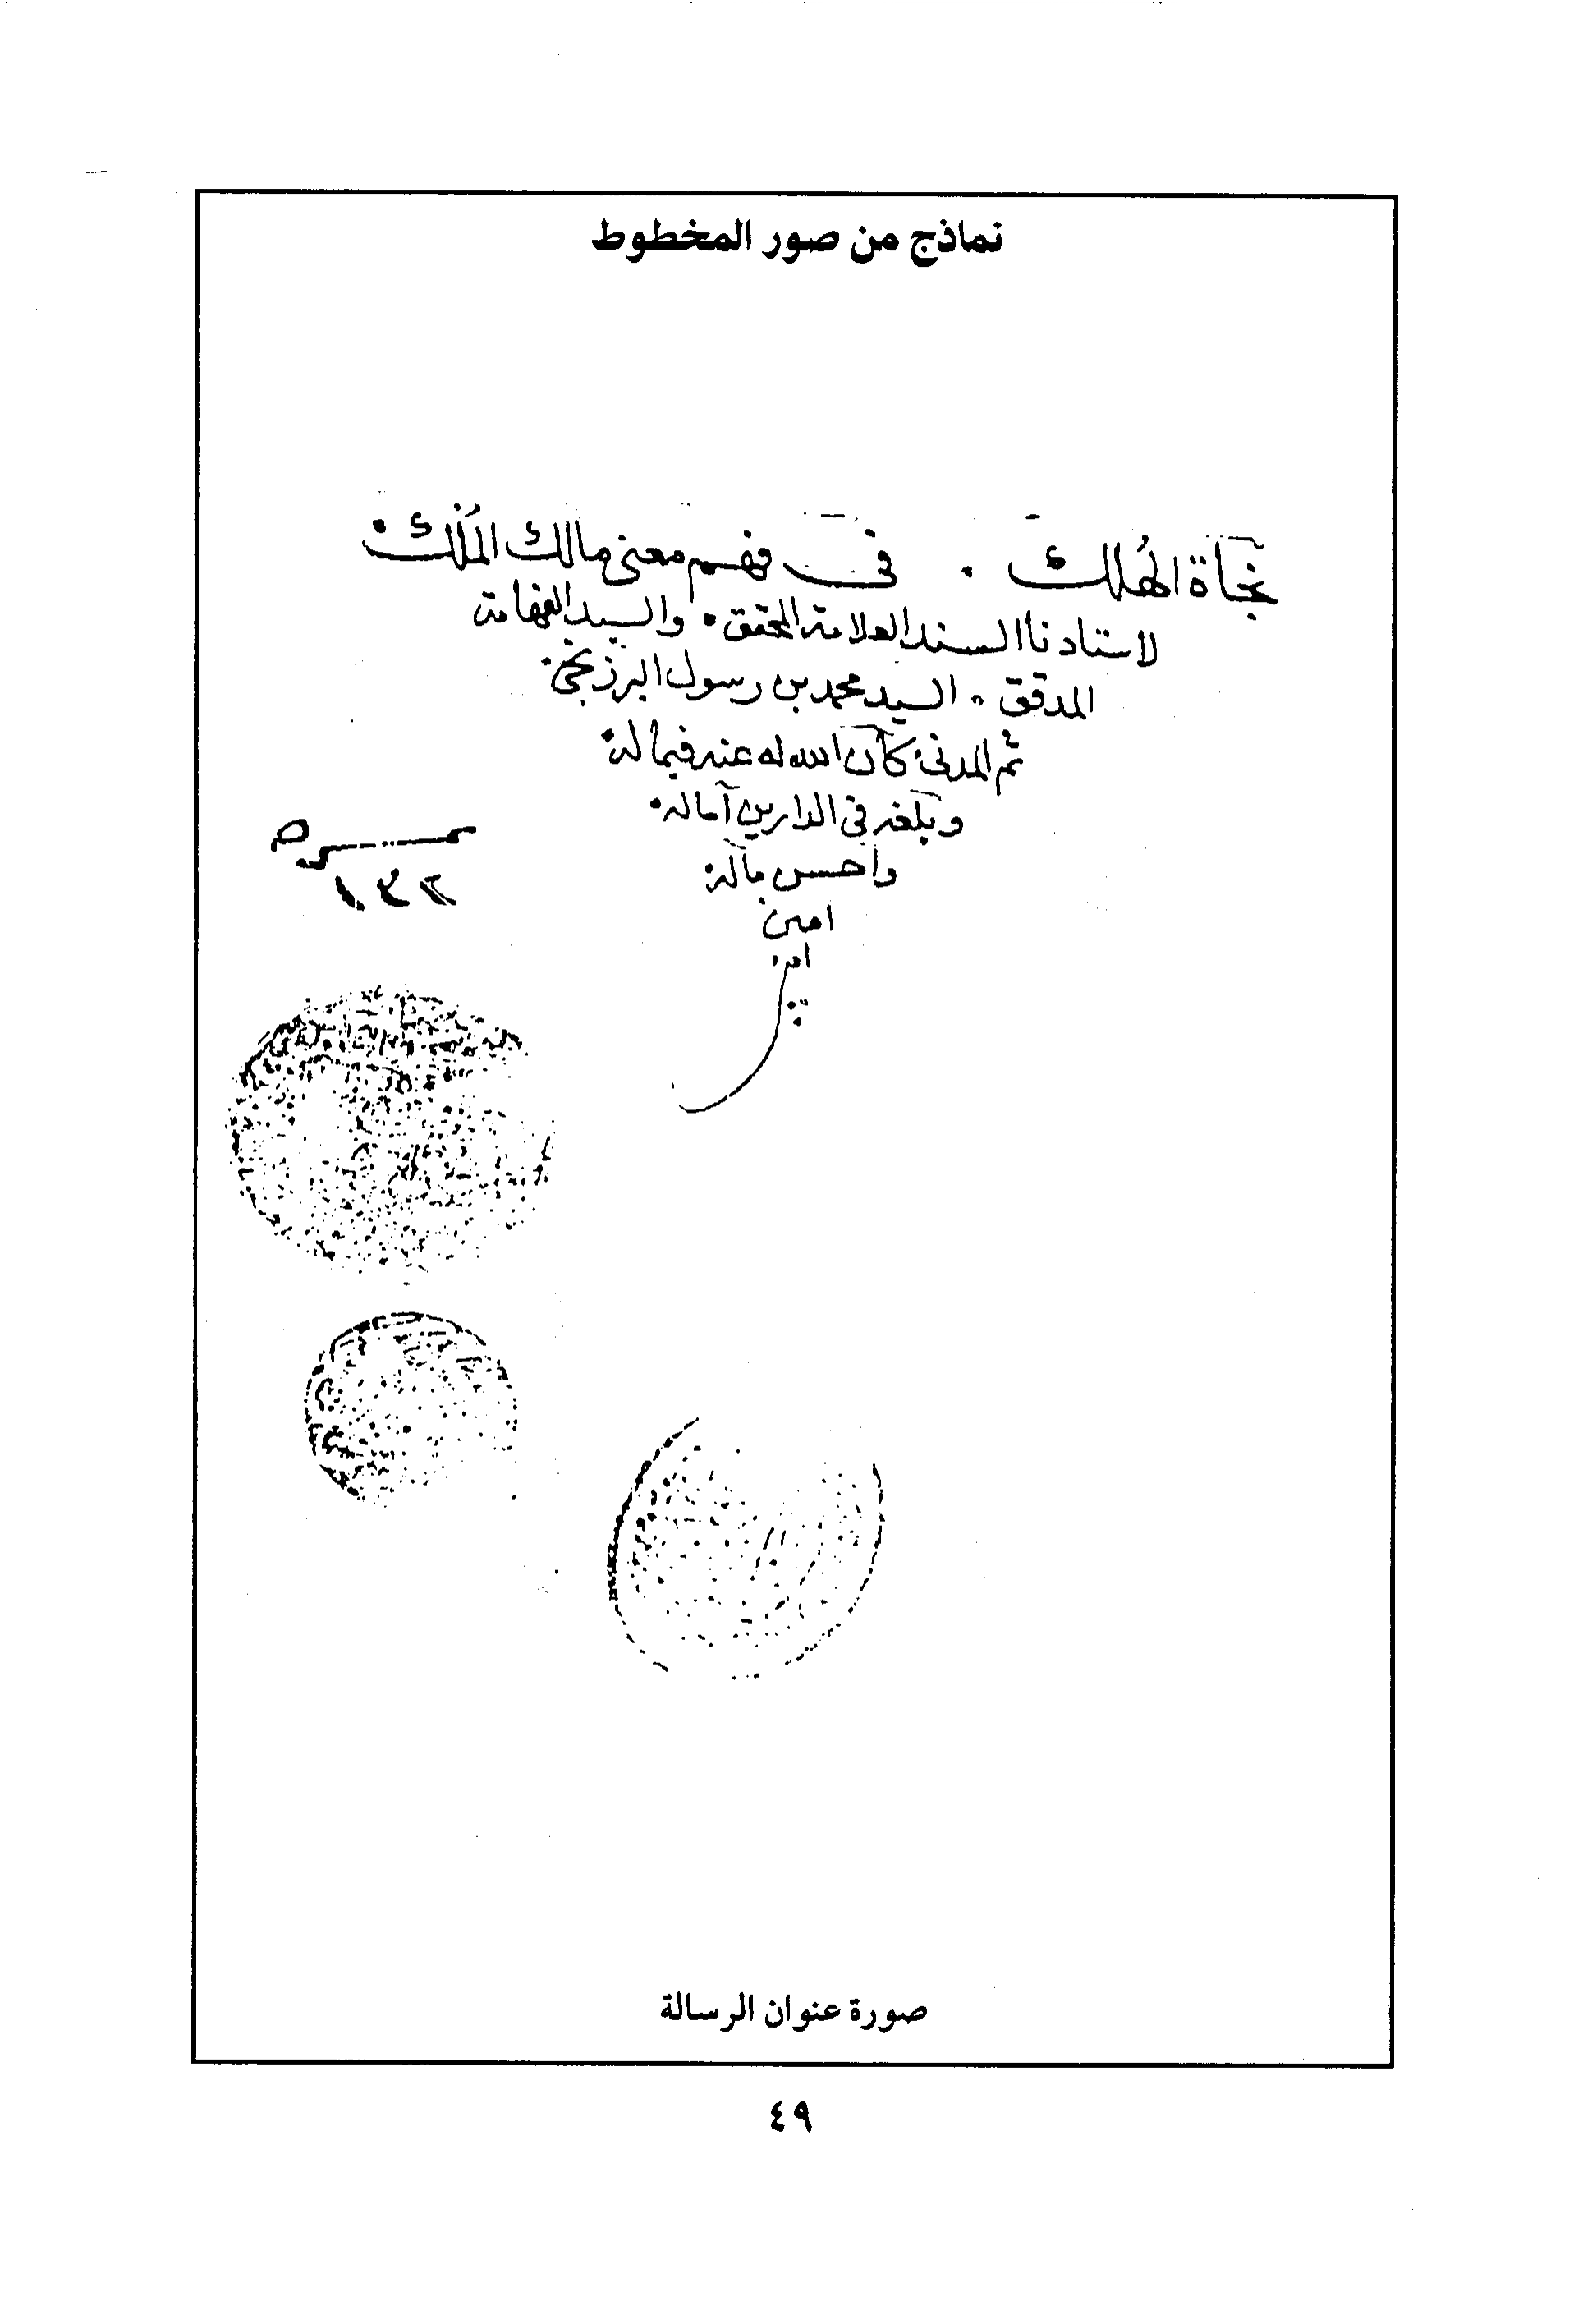 نماذج من صور المخطوط
نجاة الهلك . في فهم معنى مالك الملك
لاستاذنا السند العلامة المحقق . والسيد الفهامة
المدقق . السيد محمد بن رسول البرزنجي
ثم المدني كان الله له عنه فيما له
وبلغه في الدارين آماله
واحسن مآله
امين
امين
نمره
١٣٢
صورة عنوان الرسالة
٤٩